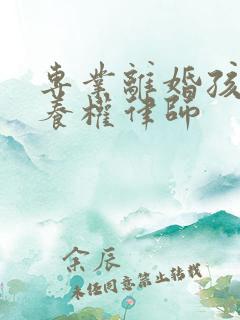 專業離婚孩
養權律師
余辰
未經同意禁止轉載